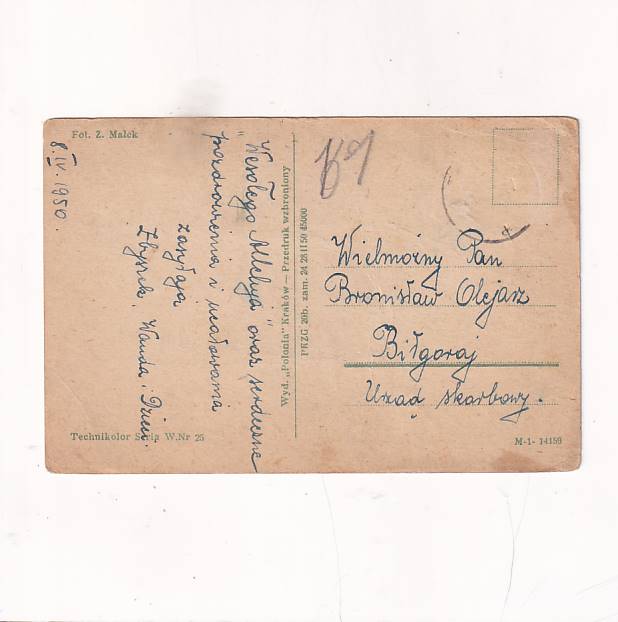 Fot. Z. Małek
8.IV.1950.
"Wesołego Alleluja" oraz serdeczne
pozdrowienia i ucałowania
zasyłają
Zbyszek, Wanda i Dzieci.
Technikolor Seria W.Nr 25
Wyd. „Polonia" Kraków — Przedruk wzbroniony
PKZG 20b. zam. 24 28 II 50 45000
Wielmożny Pan
Bronisław Olejasz
Biłgoraj
Urząd skarbowy.
M-1- 14159